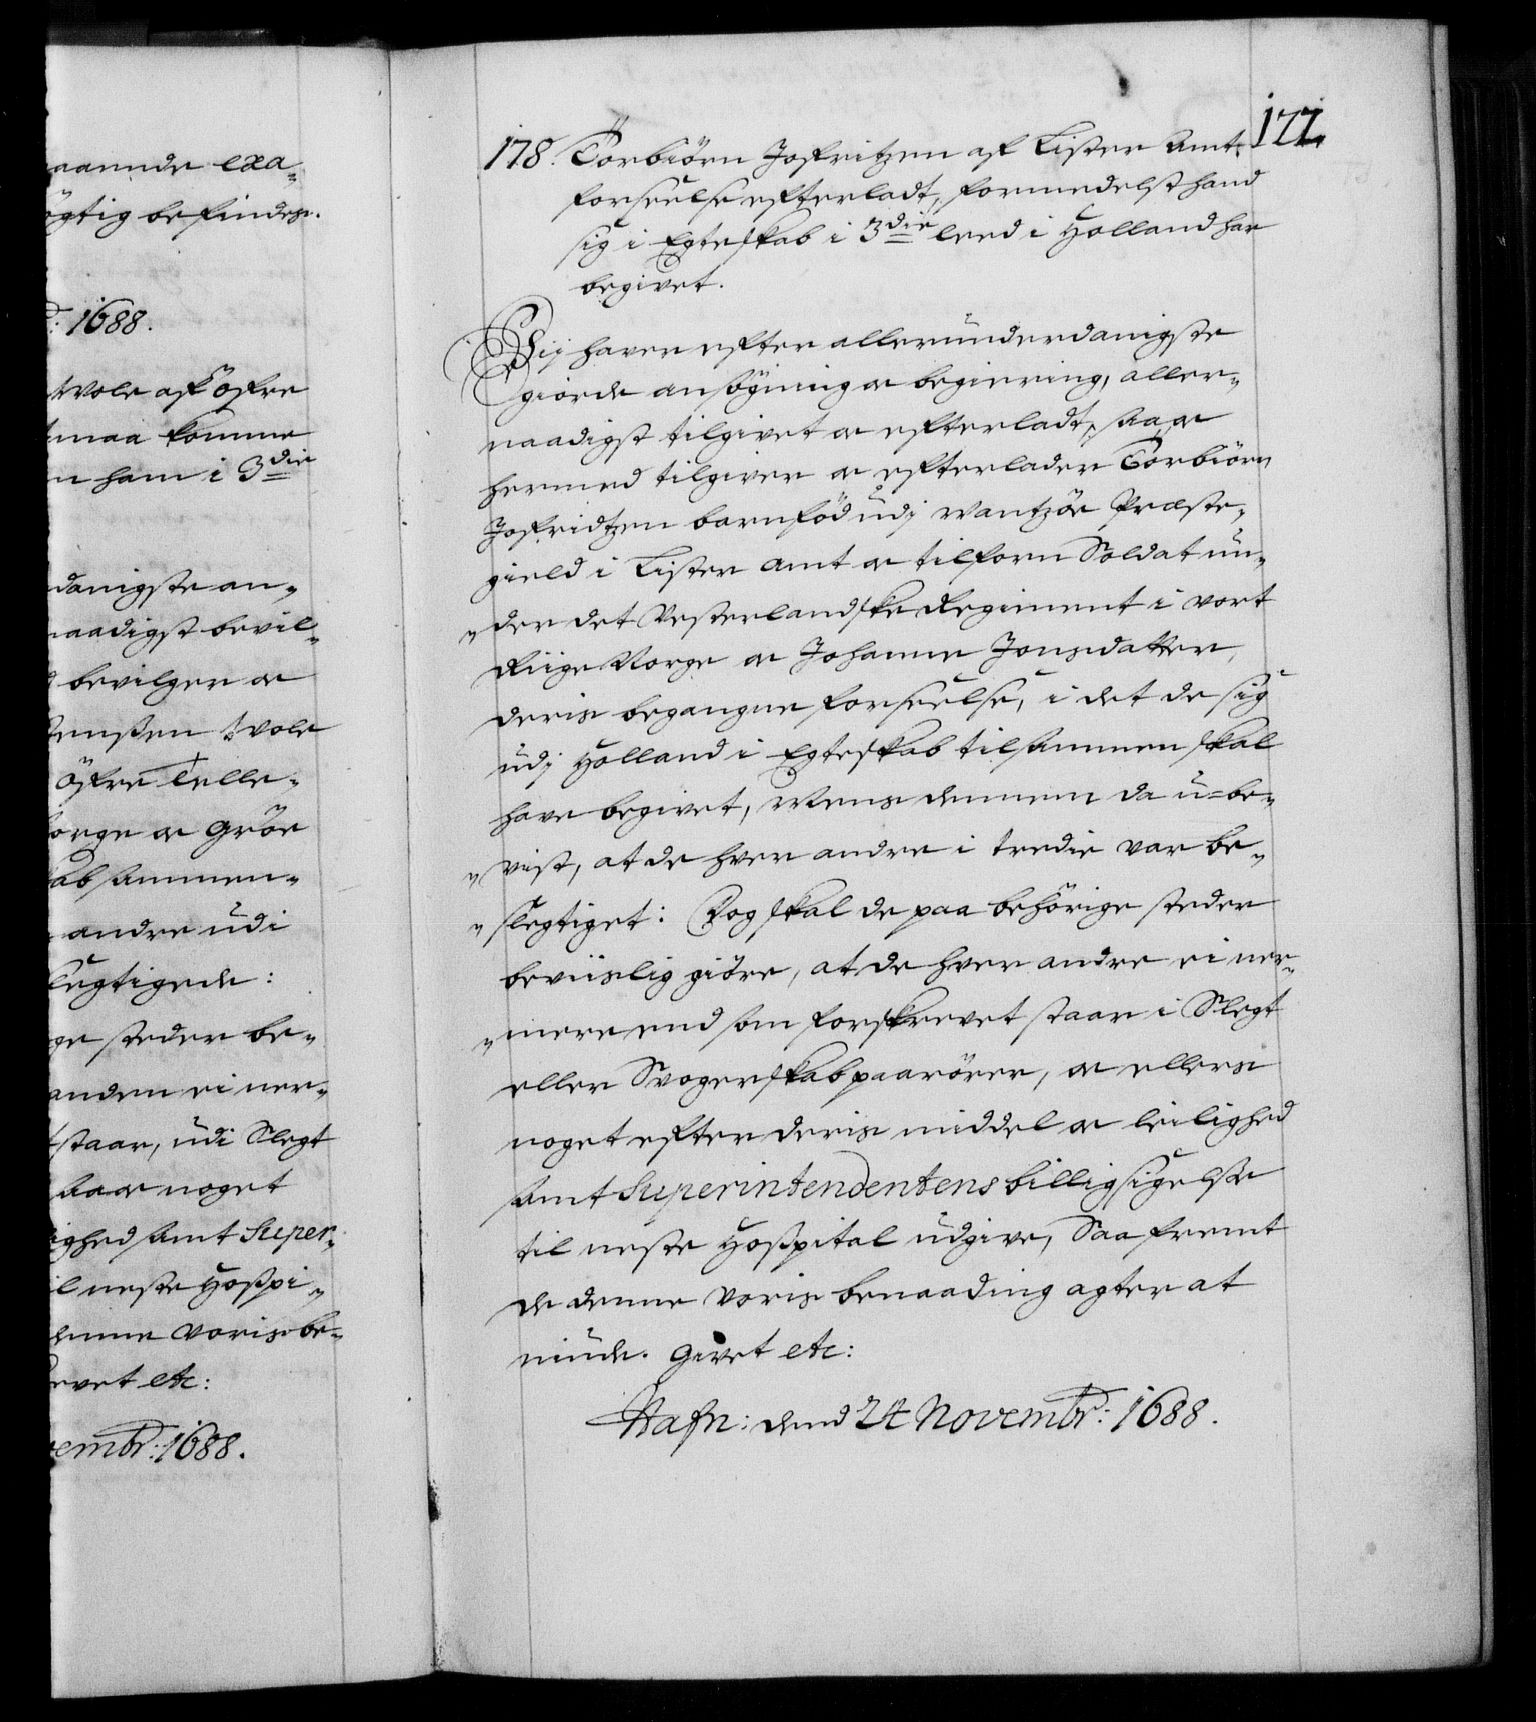 aarende exa-
ögtig befindes.
: 1688.
Wole aff Öfre
maa komme
n ham i 3die
danigste an-
naadigst bevil-
bevilger oc
enssen Wole
Öfre Telle-
orge oc Gröe
ab sammen-
andre udi
legtigede:
ge steder be-
anden ei ner-
staar, udi Slegt
saa oc noget
ighed samt Super-
il neste Hosspi-
denne voris be-
evet etc:
embr: 1688.
177.
178. Torbiörn Josfritzen af Lister Amt.
forseelse efterladt, formedelst hand
sig i Egteskab i 3die leed i Holland har
begivet.
Vij haver efter allerunderdanigste
giorde ansögning oc begiering, aller-
naadigst tilgivet oc efterladt, saa oc
hermed tilgiver oc efterlader Torbiörn
Josfridtzen barnföd udj Wantzöe Præste-
gield i Lister Amt oc tilforn Soldat un-
der det Vesterlandske Regiment i vort
Riige Norge oc Johanne Jonsdatter,
deris begangne forseelse, i det de sig
udj Holland i Egteskab tilsammen skal
have begivet, Mens dennem da u-be-
vist, at de hver andre i tredie var be-
slegtiget: Dog skal de paa behörige steder
beviislig giöre, at de hver andre ei ner-
mere end som forskrevet staar i Slegt
eller Svogerskab paarörer, oc ellers
noget efter deris middel oc leilighed
samt Superintendentens billig sigelse
til neste Hosspital udgive, Saafremt
de denne voris benaading agter at
niude. Givet etc:
Hafn: dend 24 Novembr: 1688.